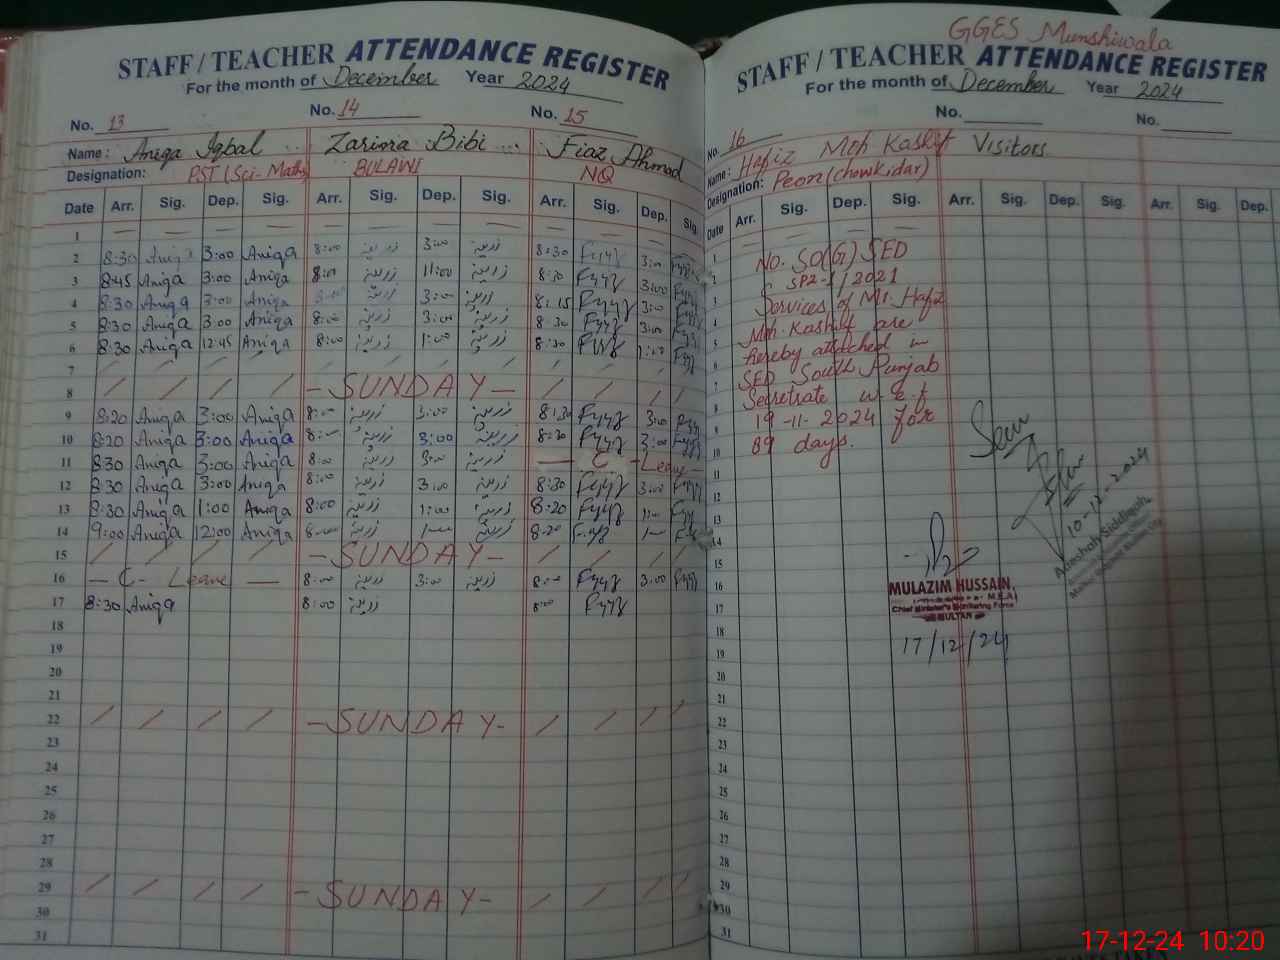 STAFF / TEACHER ATTENDANCE REGISTER
For the month of December Year 2024
No. 13 No. 14 No. 15
Name: Aniqa Iqbal Zarina Bibi Fiaz Ahmad
Designation: PST (Sci-Maths) BULAWI NQ
Date Arr. Sig. Dep. Sig. Arr. Sig. Dep. Sig. Arr. Sig. Dep. Sig.
1
2 8:30 Aniqa 3:00 Aniqa 8:00 زرینہ 3:00 زرینہ 8:30 3:00
3 8:45 Aniqa 3:00 Aniqa 8:00 زرینہ 11:00 زرینہ 8:30 3:00
4 8:30 Aniqa 3:00 Aniqa زرینہ 3:00 زرینہ 8:15 3:00
5 8:30 Aniqa 3:00 Aniqa 8:00 زرینہ 3:00 زرینہ 8:30 3:00
6 8:30 Aniqa 12:45 Aniqa 8:00 زرینہ 1:00 زرینہ 8:30 1:00
7
8 - SUNDAY -
9 8:20 Aniqa 3:00 Aniqa 8:00 زرینہ 3:00 زرینہ 8:30 3:00
10 8:20 Aniqa 3:00 Aniqa زرینہ 3:00 زرینہ 3:00
11 8:30 Aniqa 3:00 Aniqa 8:00 زرینہ 3:00 زرینہ — C - Leave —
12 8:30 Aniqa 3:00 Aniqa 8:00 زرینہ 3:00 زرینہ 8:30 3:00
13 8:30 Aniqa 1:00 Aniqa 8:00 زرینہ 1:00 زرینہ 8:20 1:00
14 9:00 Aniqa 12:00 Aniqa 8:00 زرینہ زرینہ 8:20
15 - SUNDAY -
16 — C - Leave — 8:00 زرینہ 3:00 زرینہ 8:00 3:00
17 8:30 Aniqa 8:00 زرینہ 8:00
18
19
20
21
22 - SUNDAY -
23
24
25
26
27
28
29 - SUNDAY -
30
31
GGES Munshiwala
STAFF / TEACHER ATTENDANCE REGISTER
For the month of December Year 2024
No. 16 No. No.
Name: Hafiz Moh Kashif Visitors
Designation: Peon (chowkidar)
Date Arr. Sig. Dep. Sig. Arr. Sig. Dep. Sig. Arr. Sig. Dep.
1 No. SO(G) SED
2 SP2-1/2021
3 Services of Mr. Hafiz
4 Moh Kashif are
5 hereby attached in
6 SED South Punjab
7 Secretrate w.e.f
8 19-11-2024 for
9 89 days.
10
11
12
13
14
15
16
17
18
19
20
21
22
23
24
25
26
27
28
29
30
31
10-12-2024
Ayeshah Siddiqah
MULAZIM HUSSAIN
M.E.A
Chief Minister's Monitoring Force
MULTAN
17/12/24
17-12-24 10:20